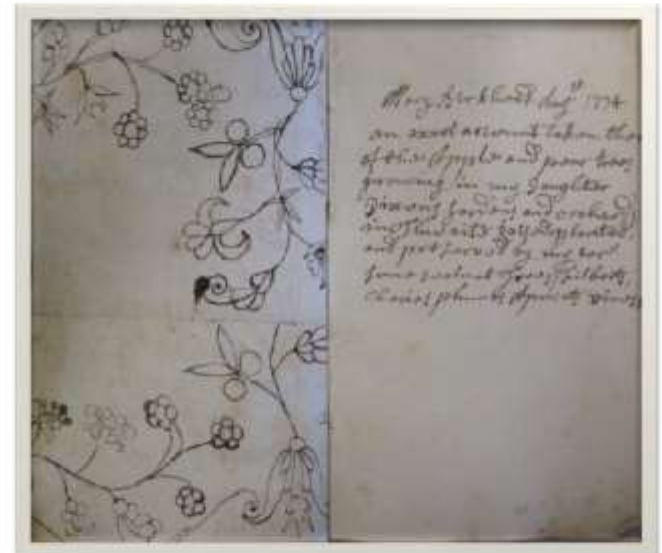 Mary Birkhead Augst 1734
an exact account taken then
of the Apple and pear trees
growing in my Daughter
Dixons Garden and orchard
and
and preserved by my
some walnut trees filberts
cheries plumbs Apricots vines